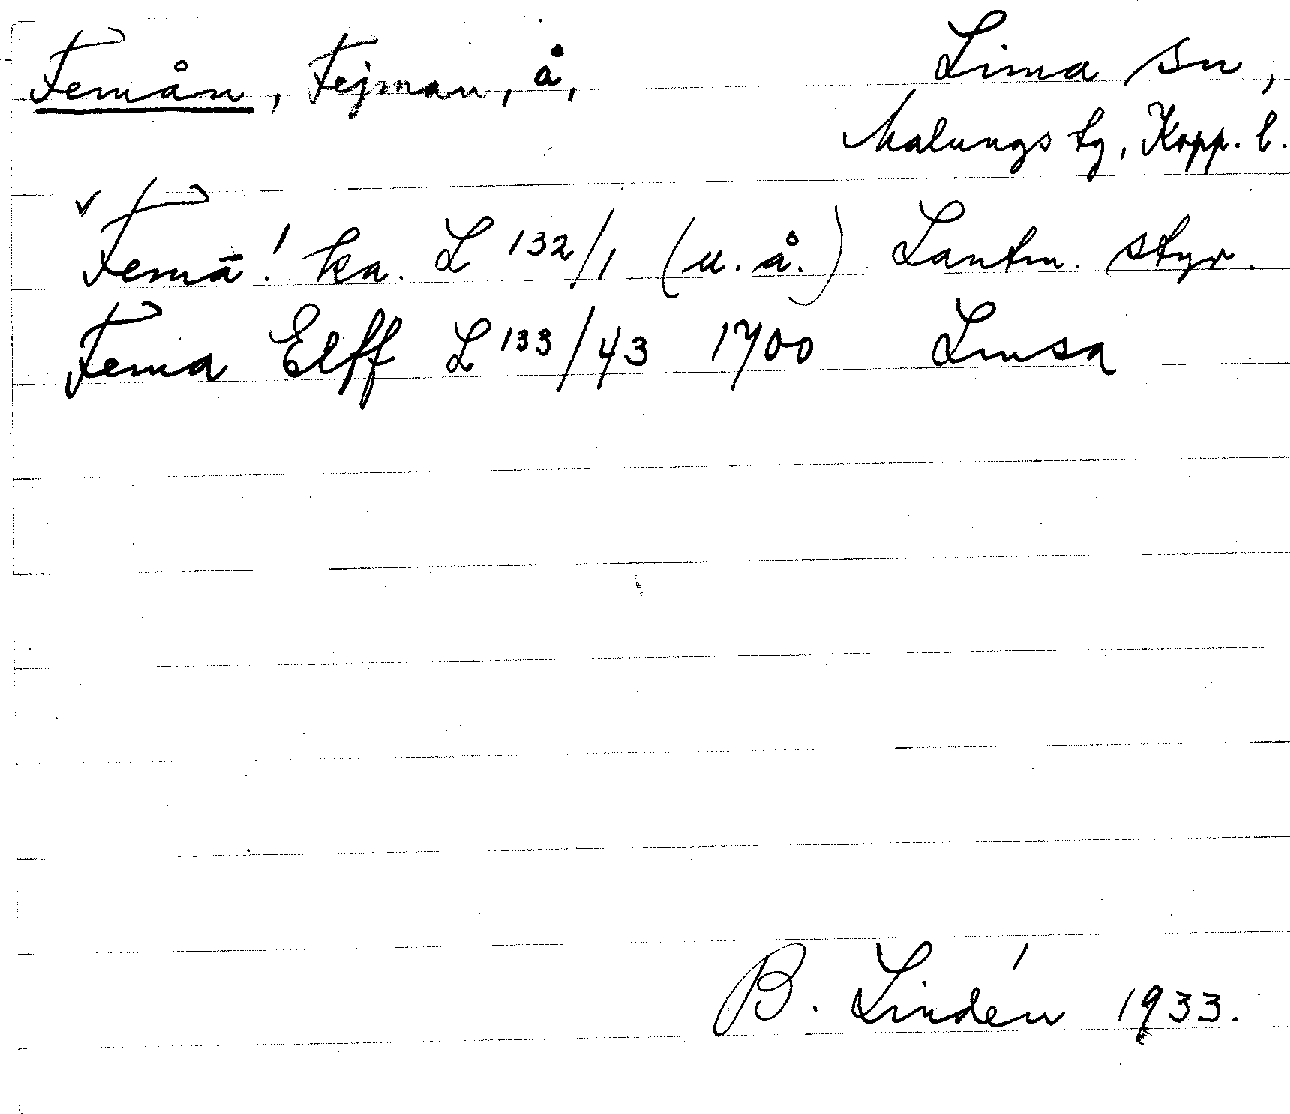 Femån, Fejman, å,
Lima sn,
Malungs tg, Kopp. l.
Femā! ka. L 132/1 (u. å.) Lantm. styr.
Fema Elff L 133/43 1700 Lmsa
B. Lindén 1933.